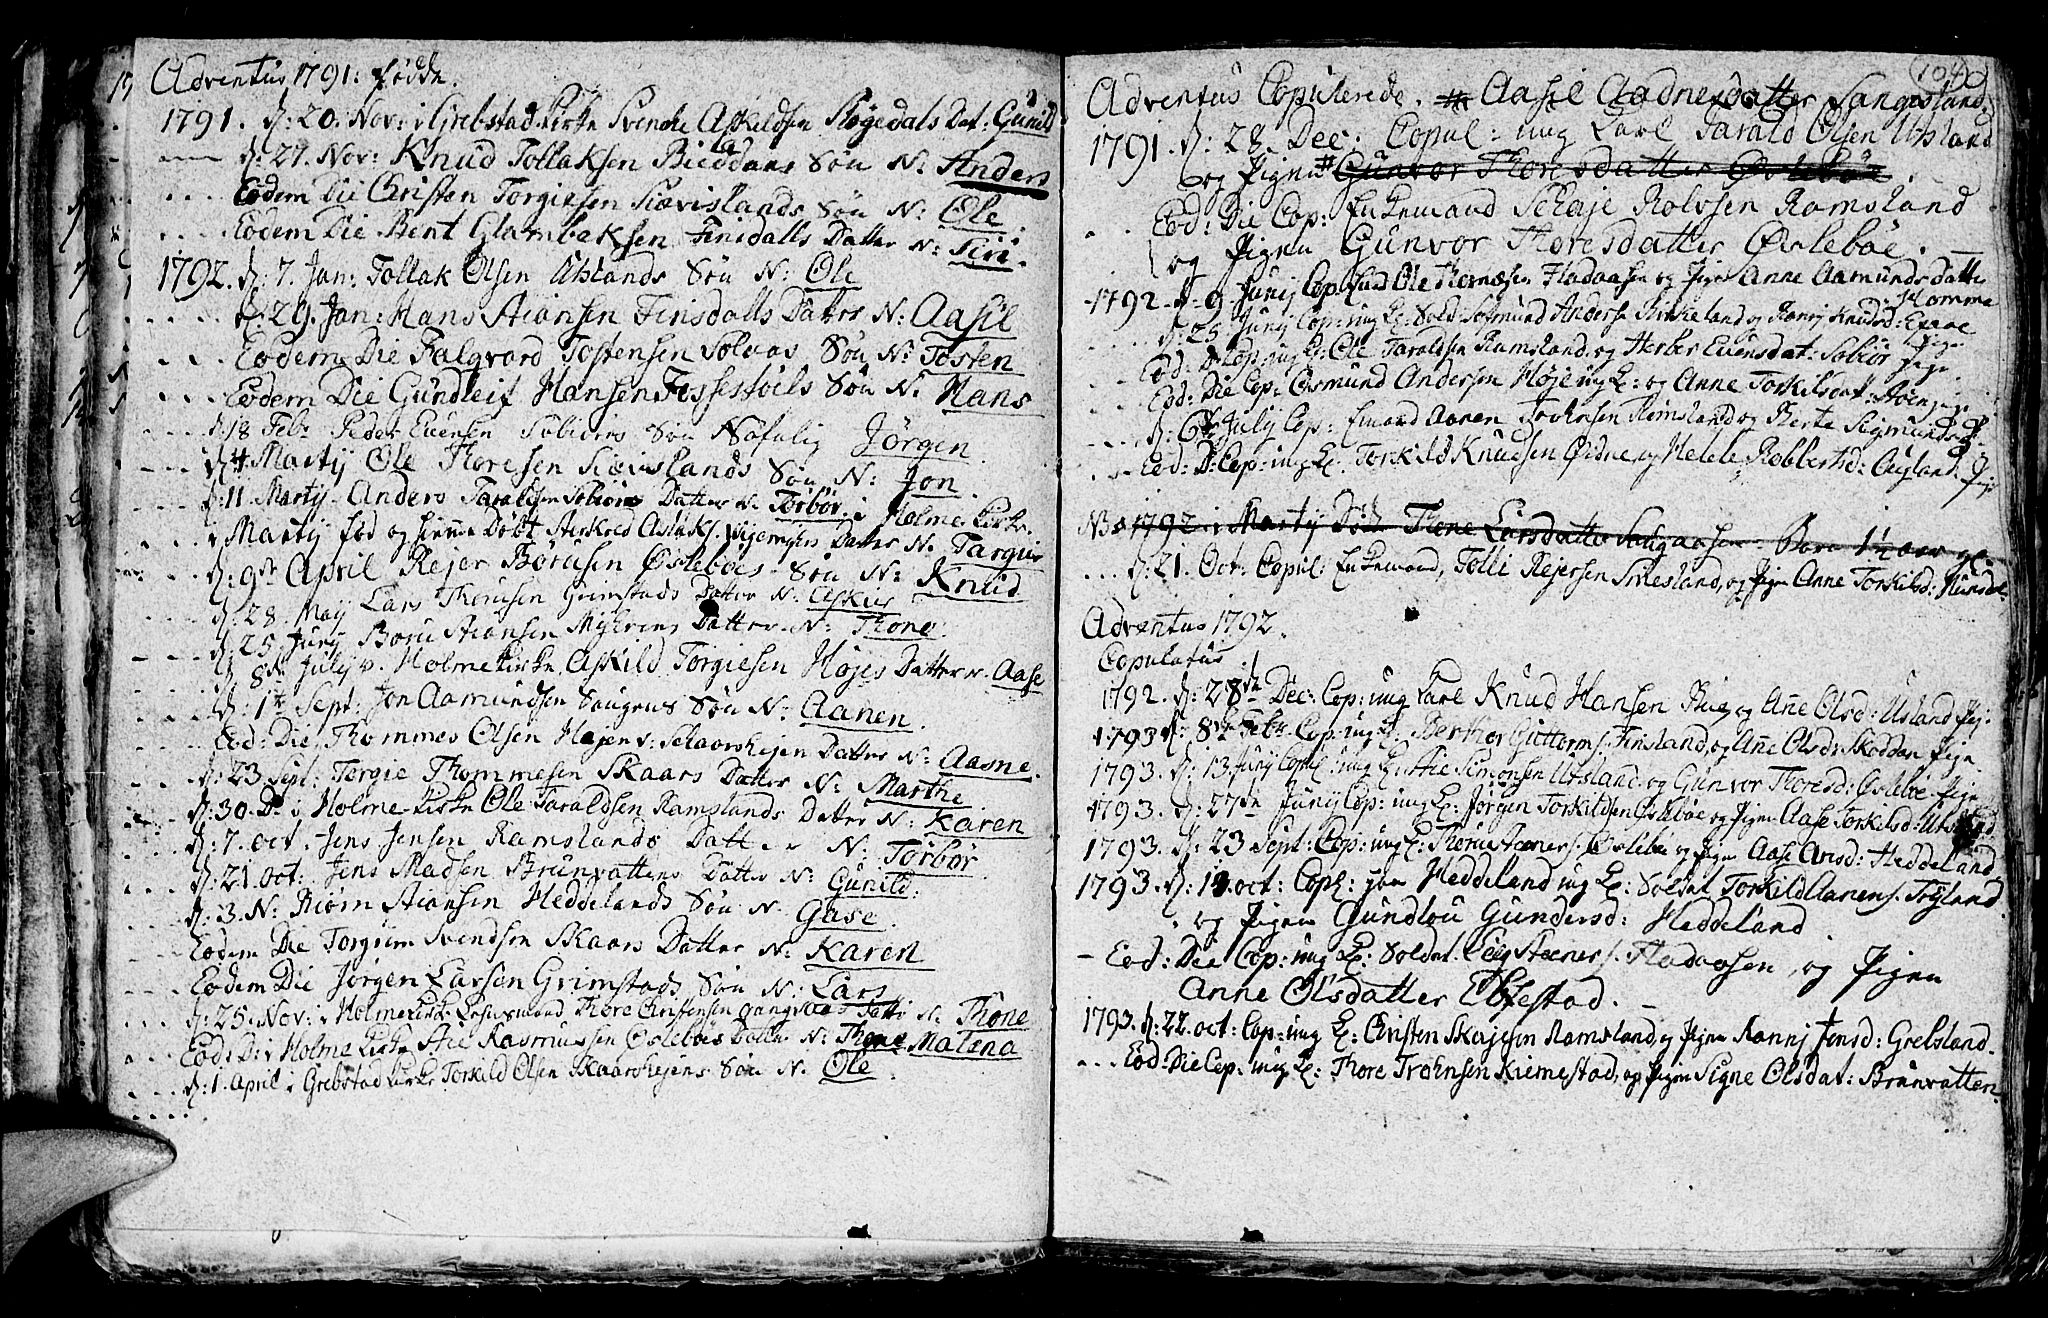 Adventus 1791: fødde.
1791. D: 20. Nov: i Grebstad Kirke Svenche Askildsen Røgedals Dat: Gunild
D: 27. Nov: Knud Tollaksen Bieldans Søn N: Anders
Eodem Die Christen Torgiesen Siævislands Søn N: Ole
Eodem Die Bent Glambeksen Finsdalls Datter N: Siri.
1792. D: 7. Jan: Tollak Olsen Utslands Søn N: Ole
D: 29. Jan: Hans Aiansen Finsdalls Datter N: Aasil
Eodem Die Falqvard Tostensen Solaas Søn N: Tosten
Eodem Die Gundleif Hansen Fossestøels Søn N. Hans
D: 18 Febr Peder Evensen Søbiørs Søn Nafnlig Jørgen
D: 4 Martij Ole Thoresen Siævislands Søn N: Jon
D: 11 Martij. Anders Taraldsen Sobiørs Datter N. Torbør i Holme Kirke.
Martij fød og hiemme Døbt Aslaks. Datter N. Targier
D: 9de April Rejer Børusen Øsleboes Søn N: Knud
D: 28. Maij Lars Thorusen Grimstads Datter N:
D: 25. Junij Boru Aiansen Myhrens Datter N: Thone
D: 8de Julij v. Holme Kirke Askild Torgiesen Højes Datter N. Aase
D: 1te Sept: Jon Aamundsen Saugens Søn N: Aanen.
Eod: Die, Thommes Olsen Hejen v: Schaarshejen Datter N: Aasne.
D: 23 Sept: Torgie Thommesen Skaars Datter N: Marthe.
D: 30. D: i Holme Kirke Ole Taraldsen Ramslands Datter N: Karen
D: 7. Oct. Jens Jensen Ramslands Datter N: Torbør
D: 21. Oct: Jens Madsen Brunvattens Datter N: Gunild.
D: 3. N: Biørn Aiansen Heddelands Søn N. Gase.
Eodem Die Torgium Svendsen Skaars Datter N: Karen
Eodem Die Jørgen Larsen Grimstads Søn N: Lars
D: 25. Nov: i Holme Kirke Thore Christensen Datter N. Thone
Eod: D: i Holme Kirke Aie Rasmussen Øsleboes Datter N: Thone Malena
D: 1. April i Grebstad Kirke Torkild Olsen Skaarshejens Søn N. Ole.
104
Adventus Copulerede. # Aasil Aadnesdatter Langesland.
1791. D: 28. Dec: Copul: ung Karl Tarald Olsen Utsland
og Pigen # Gunvor Thoresdatter Øsleboe.
Eod: Die Cop: Enkemand Schaje Rolvsen Ramsland
og Pigen Gunvor Thoresdatter Øsleboe.
1792. D: 9. Junij Cop: Ole Thomæsen Fladaasen og Pige Anne Aamundsdatter
Homme
D: 25 Junij Cop: ung K: Sold: Sigmund Anders. Kirkeland og Ranij Knudsd:
Pige
Eod: D: Cop: ung K: Ole Taraldsen Ramsland, og Herber Evensdat: Sobiør Pige.
Eod: Die Cop: Osmund Andersen Høje ung K: og Anne Torkilsdat: Aoen pige
D: 6te Julij Cop: Emand Aanen Torkelsen Ramsland og Berte Sigmundsd:
Eod: D: Cop: ung K: Torkild Knudsen Øidne, og Helele Robbertsd: Augland. Pige
NB: 1792. i Martij Døde Thone Larsdatter Saugaasen
D: 21. Oct: Copul: Enkemand, Tolli Rejersen Smesland, og Pigen Anne Torkilsd:
Adventus 1792.
Copulatus.
1792. D: 28de Dec: Cop: ung Karl Knud Hansen Rue, og Añe Olsd: Usland Pij:
1793. D: 8de Febr. Cop: ung K: Berthor Guttorms. Finsland, og Añe Olsd: Skoddan Pige
1793. D: 13. Junij Copul: ung K: Aie Simonsen Utsland. og Gunvor Thoresd: Øsleboe Pige
1793. D: 27de Junij Cop: ung K: Jørgen Torkildsen Øsleboe og Pigen Aase Torkilsd: Utsland
1793. D: 23 Sept: Cop: ung K: Thorie Steeners. Øsleboe og Pigen Aase Arnsd: Heddeland.
1793. D: 13. Oct: Copl: paa Heddeland ung K: Soldat Torkild Aanens. Trygland
og Pigen Gundlou Gundersd: Heddeland.
- Eod: Die Cop: ung K: Soldat Steeners. Fladaasen, og Pigen
Anne Olsdatter Ebbestad.
1793. D: 22. Oct: Cop: ung K: Christen Skajesen Ramsland, og Pigen Rannj Jensd: Grebsland.
Eod: Die Cop: ung K: Thore Trohnsen Kiemestad, og Pigen Signe Olsdat: Brunvatten.